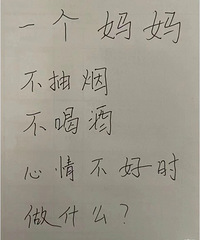 一个妈妈
不抽烟
不喝酒
心情不好时
做什么？